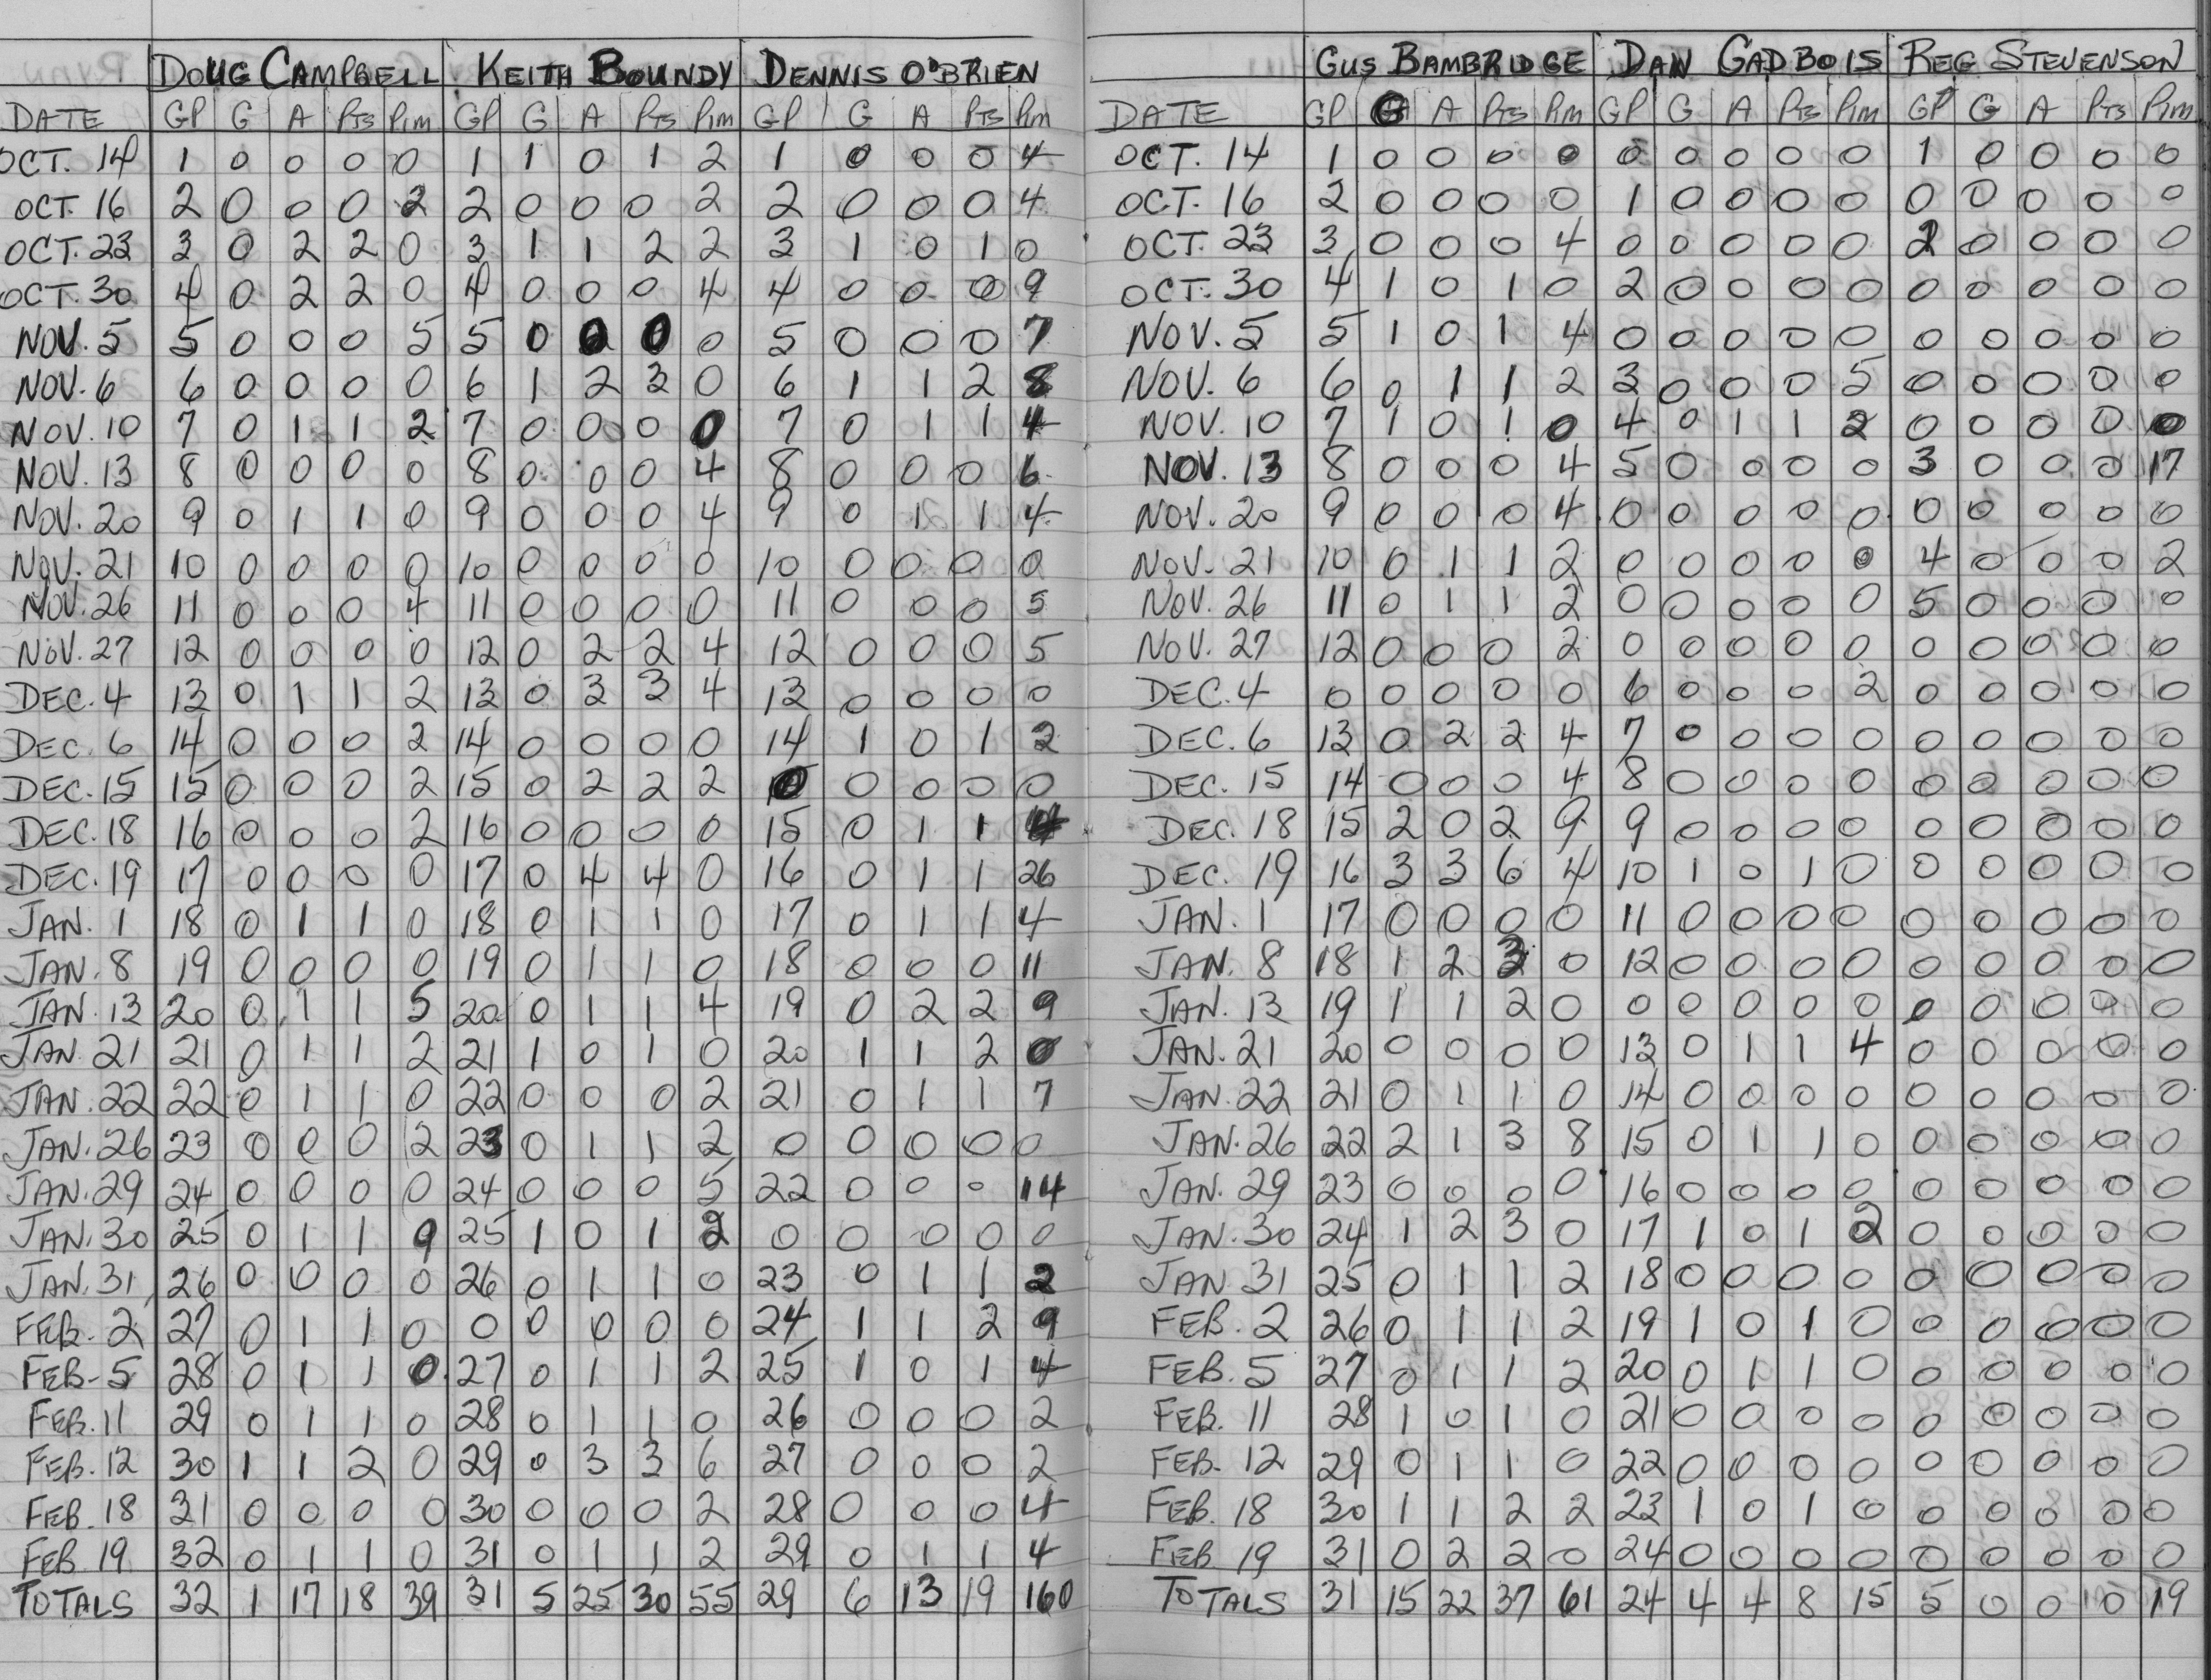 DOUG CAMPBELL KEITH BOUNDY DENNIS O'BRIEN
DATE GP G A Pts Pim GP G A Pts Pim GP G A Pts Pim
OCT. 14 1 0 0 0 0 1 1 0 1 2 1 0 0 0 4
OCT. 16 2 0 0 0 2 2 0 0 0 2 2 0 0 0 4
OCT. 23 3 0 2 2 0 3 1 1 2 2 3 1 0 1 0
OCT. 30 4 0 2 2 0 4 0 0 0 4 4 0 0 0 9
NOV. 5 5 0 0 0 5 5 0 0 0 0 5 0 0 0 7
NOV. 6 6 0 0 0 0 6 1 2 3 0 6 1 1 2 8
NOV. 10 7 0 1 1 2 7 0 0 0 0 7 0 1 1 4
NOV. 13 8 0 0 0 0 8 0 0 0 4 8 0 0 0 6
NOV. 20 9 0 1 1 0 9 0 0 0 4 9 0 1 1 4
NOV. 21 10 0 0 0 0 10 0 0 0 0 10 0 0 0 0
NOV. 26 11 0 0 0 4 11 0 0 0 0 11 0 0 0 5
NOV. 27 12 0 0 0 0 12 0 2 2 4 12 0 0 0 5
DEC. 4 13 0 1 1 2 13 0 3 3 4 13 0 0 0 0
DEC. 6 14 0 0 0 2 14 0 0 0 0 14 1 0 1 2
DEC. 15 15 0 0 0 2 15 0 2 2 2 0 0 0 0 0
DEC. 18 16 0 0 0 2 16 0 0 0 0 15 0 1 1 4
DEC. 19 17 0 0 0 0 17 0 4 4 0 16 0 1 1 26
JAN. 1 18 0 1 1 0 18 0 1 1 0 17 0 1 1 4
JAN. 8 19 0 0 0 0 19 0 1 1 0 18 0 0 0 11
JAN. 13 20 0 1 1 5 20 0 1 1 4 19 0 2 2 9
JAN. 21 21 0 1 1 2 21 1 0 1 0 20 1 1 2 0
JAN. 22 22 0 1 1 0 22 0 0 0 2 21 0 1 1 7
JAN. 26 23 0 0 0 2 23 0 1 1 2 0 0 0 0 0
JAN. 29 24 0 0 0 0 24 0 0 0 5 22 0 0 0 14
JAN. 30 25 0 1 1 9 25 1 0 1 2 0 0 0 0 0
JAN. 31 26 0 0 0 0 26 0 1 1 0 23 0 1 1 2
FEB. 2 27 0 1 1 0 0 0 0 0 0 24 1 1 2 9
FEB. 5 28 0 1 1 0 27 0 1 1 2 25 1 0 1 4
FEB. 11 29 0 1 1 0 28 0 1 1 0 26 0 0 0 2
FEB. 12 30 1 1 2 0 29 0 3 3 6 27 0 0 0 2
FEB. 18 31 0 0 0 0 30 0 0 0 2 28 0 0 0 4
FEB. 19 32 0 1 1 0 31 0 1 1 2 29 0 1 1 4
TOTALS 32 1 17 18 39 31 5 25 30 55 29 6 13 19 160
GUS BAMBRIDGE DAN GADBOIS REG STEVENSON
DATE GP G A Pts Pim GP G A Pts Pim GP G A Pts Pim
OCT. 14 1 0 0 0 0 0 0 0 0 0 1 0 0 0 0
OCT. 16 2 0 0 0 0 1 0 0 0 0 0 0 0 0 0
OCT. 23 3 0 0 0 4 0 0 0 0 0 2 0 0 0 0
OCT. 30 4 1 0 1 0 2 0 0 0 0 0 0 0 0 0
NOV. 5 5 1 0 1 4 0 0 0 0 0 0 0 0 0 0
NOV. 6 6 0 1 1 2 3 0 0 0 5 0 0 0 0 0
NOV. 10 7 1 0 1 0 4 0 1 1 2 0 0 0 0 0
NOV. 13 8 0 0 0 4 5 0 0 0 0 3 0 0 0 17
NOV. 20 9 0 0 0 4 0 0 0 0 0 0 0 0 0 0
NOV. 21 10 0 1 1 2 0 0 0 0 0 4 0 0 0 2
NOV. 26 11 0 1 1 2 0 0 0 0 0 5 0 0 0 0
NOV. 27 12 0 0 0 2 0 0 0 0 0 0 0 0 0 0
DEC. 4 0 0 0 0 0 6 0 0 0 2 0 0 0 0 0
DEC. 6 13 0 2 2 4 7 0 0 0 0 0 0 0 0 0
DEC. 15 14 0 0 0 4 8 0 0 0 0 0 0 0 0 0
DEC. 18 15 2 0 2 9 9 0 0 0 0 0 0 0 0 0
DEC. 19 16 3 3 6 4 10 1 0 1 0 0 0 0 0 0
JAN. 1 17 0 0 0 0 11 0 0 0 0 0 0 0 0 0
JAN. 8 18 1 2 3 0 12 0 0 0 0 0 0 0 0 0
JAN. 13 19 1 1 2 0 0 0 0 0 0 0 0 0 0 0
JAN. 21 20 0 0 0 0 13 0 1 1 4 0 0 0 0 0
JAN. 22 21 0 1 1 0 14 0 0 0 0 0 0 0 0 0
JAN. 26 22 2 1 3 8 15 0 1 1 0 0 0 0 0 0
JAN. 29 23 0 0 0 0 16 0 0 0 0 0 0 0 0 0
JAN. 30 24 1 2 3 0 17 1 0 1 2 0 0 0 0 0
JAN. 31 25 0 1 1 2 18 0 0 0 0 0 0 0 0 0
FEB. 2 26 0 1 1 2 19 1 0 1 0 0 0 0 0 0
FEB. 5 27 0 1 1 2 20 0 1 1 0 0 0 0 0 0
FEB. 11 28 1 0 1 0 21 0 0 0 0 0 0 0 0 0
FEB. 12 29 0 1 1 0 22 0 0 0 0 0 0 0 0 0
FEB. 18 30 1 1 2 2 23 1 0 1 0 0 0 0 0 0
FEB 19 31 0 2 2 0 24 0 0 0 0 0 0 0 0 0
TOTALS 31 15 22 37 61 24 4 4 8 15 5 0 0 0 19